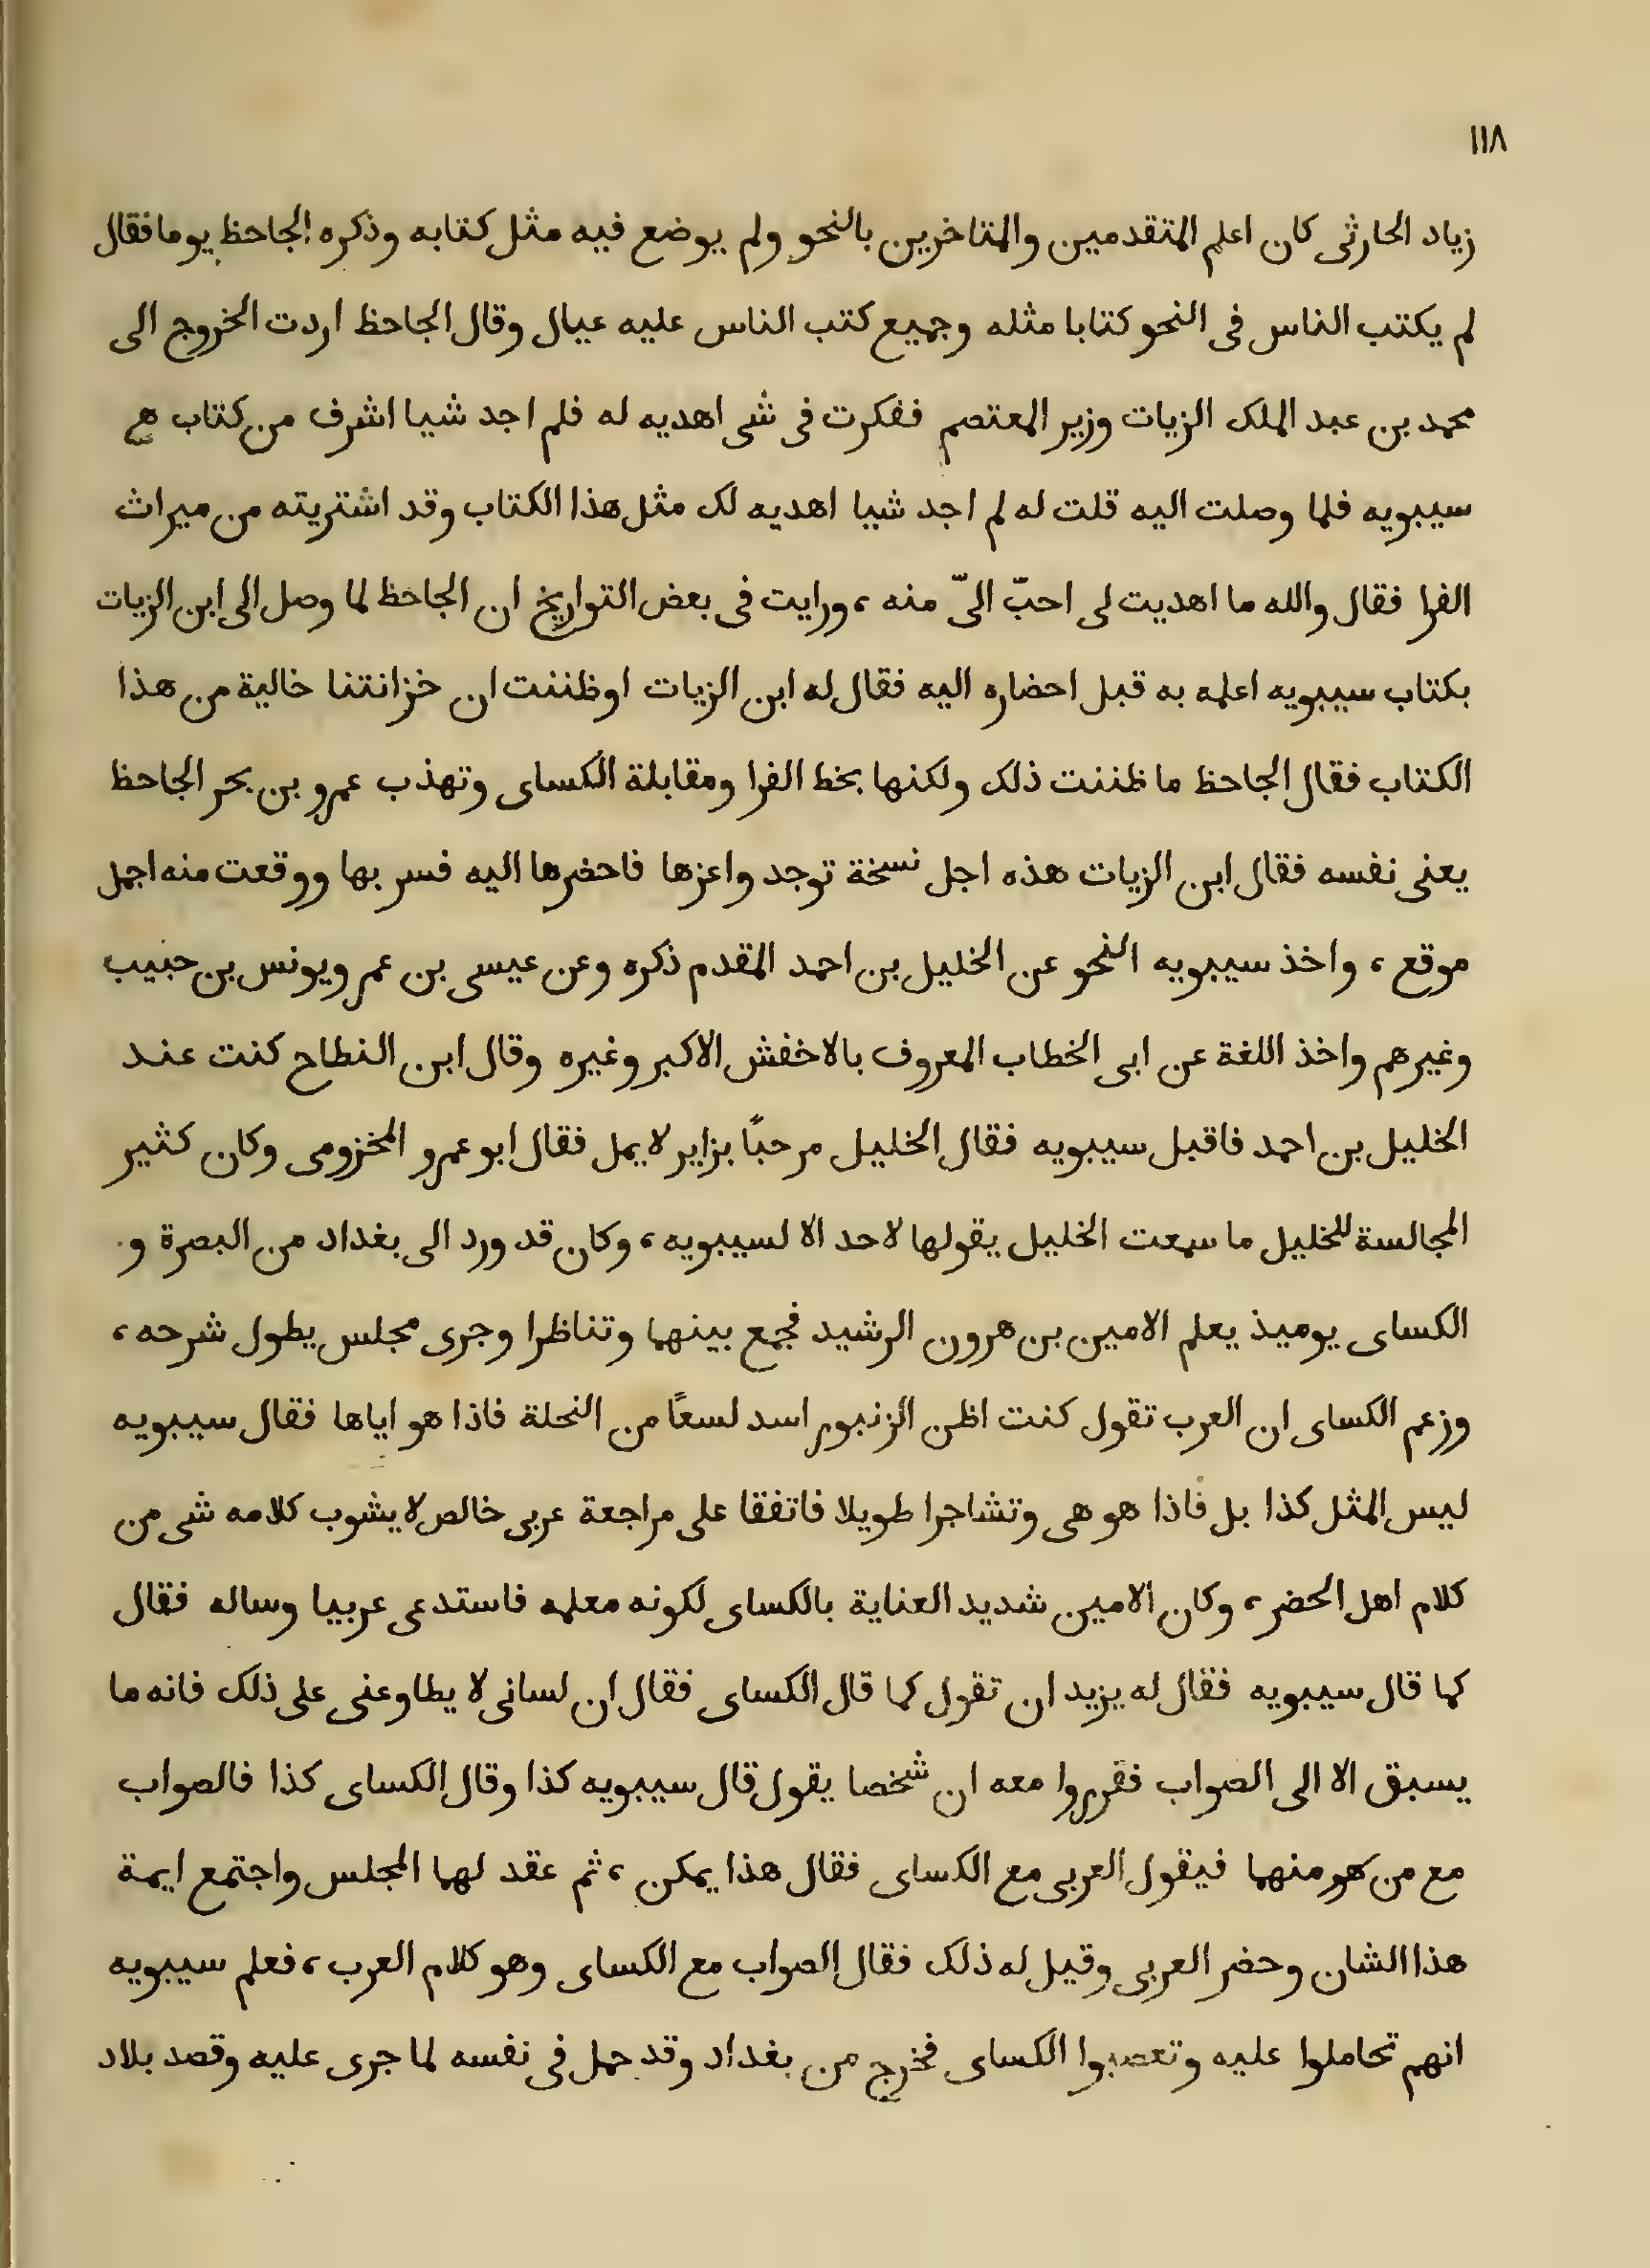 ١١٨
زياد الحارثى كان اعلم المتقدمين والمتاخرين بالنحو ولم يوضع فيه مثل كتابه وذكره الجاحظ يوما فقال
لم يكتب الناس فى النحو كتابا مثله وجميع كتب الناس عليه عيال وقال الجاحظ اردت الخروج الى
محمد بن عبد الملك الزيات وزير المعتصم ففكرت فى شى اهديه له فلم اجد شيا اشرف من كتاب
سيبويه فلما وصلت اليه قلت له لم اجد شيا اهديه لك مثل هذا الكتاب وقد اشتريته من ميراث
الفرا فقال والله ما اهديت لى احبّ الىّ منه ، ورايت فى بعض التواريخ ان الجاحظ لما وصل الى ابن الزيات
بكتاب سيبويه اعلمه به قبل احضاره اليه فقال له ابن الزيات اوظننت ان خزانتنا خالية من هذا
الكتاب فقال الجاحظ ما ظننت ذلك ولكنها بخط الفرا ومقابلة الكساى وتهذب عمرو بن بحر الجاحظ
يعنى نفسه فقال ابن الزيات هذه اجل نسخة توجد واعزها فاحضرها اليه فسر بها ووقعت منه اجمل
موقع ، واخذ سيبويه النحو عن الخليل بن احمد المقدم ذكره وعن عيسى بن عمر ويونس بن حبيب
وغيرهم واخذ اللغة عن ابى الخطاب المعروف بالاخفش الاكبر وغيره وقال ابن النطاح كنت عند
الخليل بن احمد فاقبل سيبويه فقال الخليل مرحبًا بزاير لا يمل فقال ابو عمرو المخزومى وكان كثير
المجالسة للخليل ما سمعت الخليل يقولها لاحد الا لسيبويه ، وكان قد ورد الى بغداد من البصرة و
الكساى يوميذ يعلم الامين بن هرون الرشيد فجمع بينهما وتناظرا وجرى مجلس يطول شرحه ،
وزعم الكساى ان العرب تقول كنت اظن الزنبور اسد لسعًا من النحلة فاذا هو اياها فقال سيبويه
ليس المثل كذا بل فاذا هو هى وتشاجرا طويلا فاتفقا على مراجعة عربى خالص لا يشوب كلامه شى من
كلام اهل الحضر ، وكان الامين شديد العناية بالكساى لكونه معلمه فاستدعى عربيا وساله فقال
كما قال سيبويه فقال له يزيد ان تقول كما قال الكساى فقال ان لسانى لا يطاوعنى على ذلك فانه ما
يسبق الا الى الصواب فقرروا معه ان شخصا يقول قال سيبويه كذا وقال الكساى كذا فالصواب
مع من هو منهما فيقول العربى مع الكساى فقال هذا يمكن ، ثم عقد لهما المجلس واجتمع ايمة
هذا الشان وحضر العربى وقيل له ذلك فقال الصواب مع الكساى وهو كلام العرب ، فعلم سيبويه
انهم تحاملوا عليه وتعصبوا الكساى فخرج من بغداد وقد حمل فى نفسه لما جرى عليه وقصد بلاد